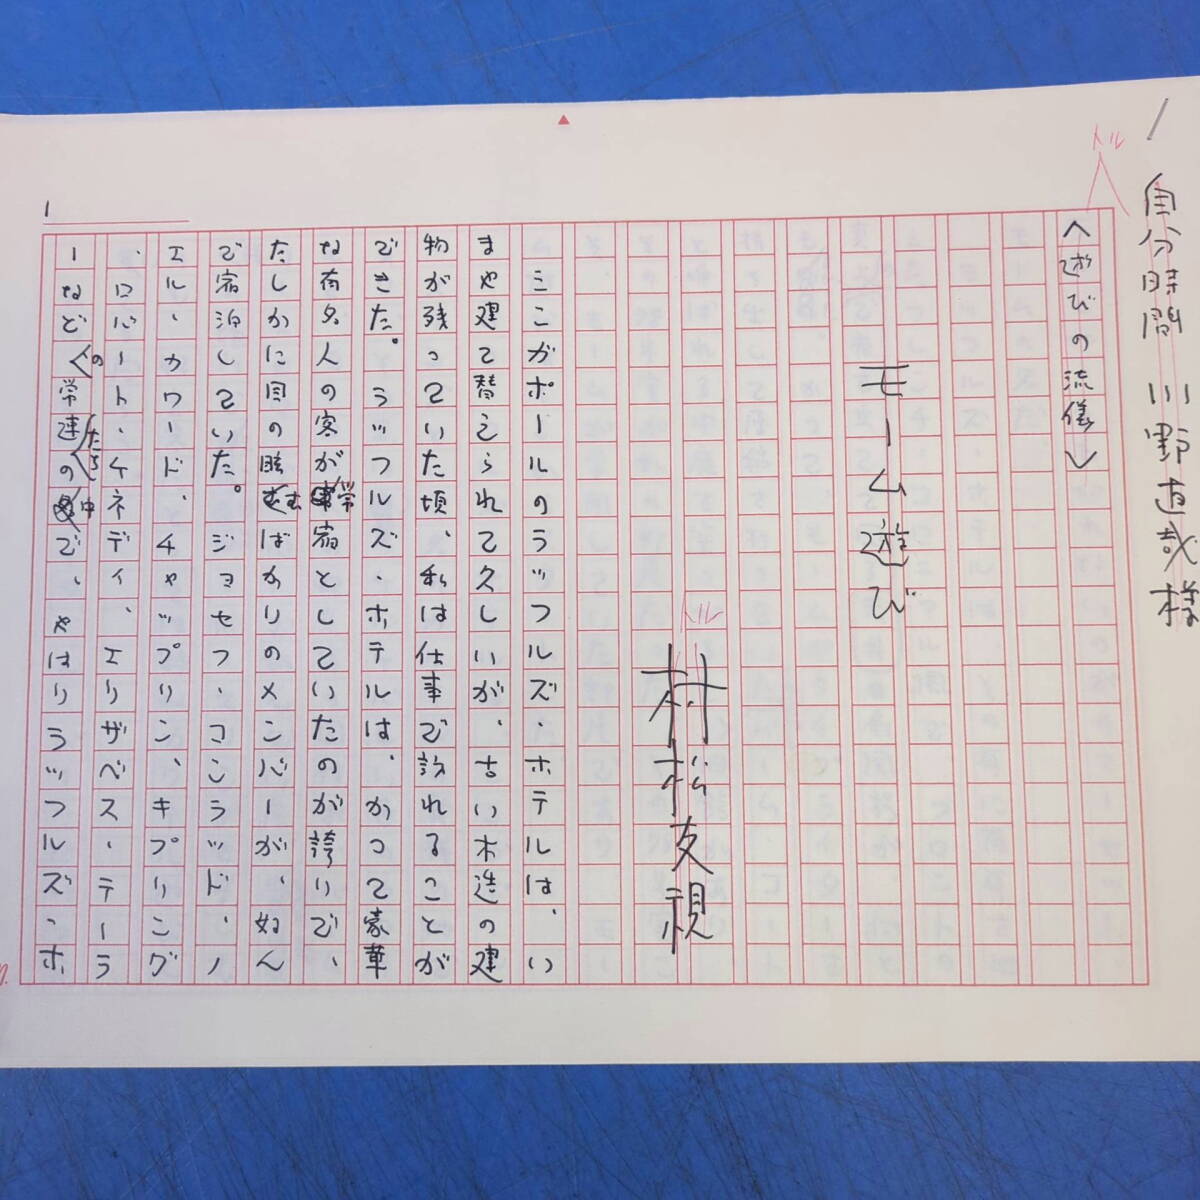 自分時間 川野直哉様
トル
〈遊びの流儀〉
モーム遊び
トル
村松友視
1
シンガポールのラッフルズ・ホテルは、い
まや建て替えられて久しいが、古い木造の建
物が残っていた頃、私は仕事で訪れることが
できた。ラッフルズ・ホテルは、かつて豪華
な有名人の客が常宿としていたのが誇りで、
たしかに目の眩むばかりのメンバーが、好ん
で宿泊していた。ジョセフ・コンラッド、ノ
エル・カワード、チャップリン、キプリング
、ロバート・ケネディ、エリザベス・テーラ
ーなどの常連たちの中で、やはりラッフルズ・ホ